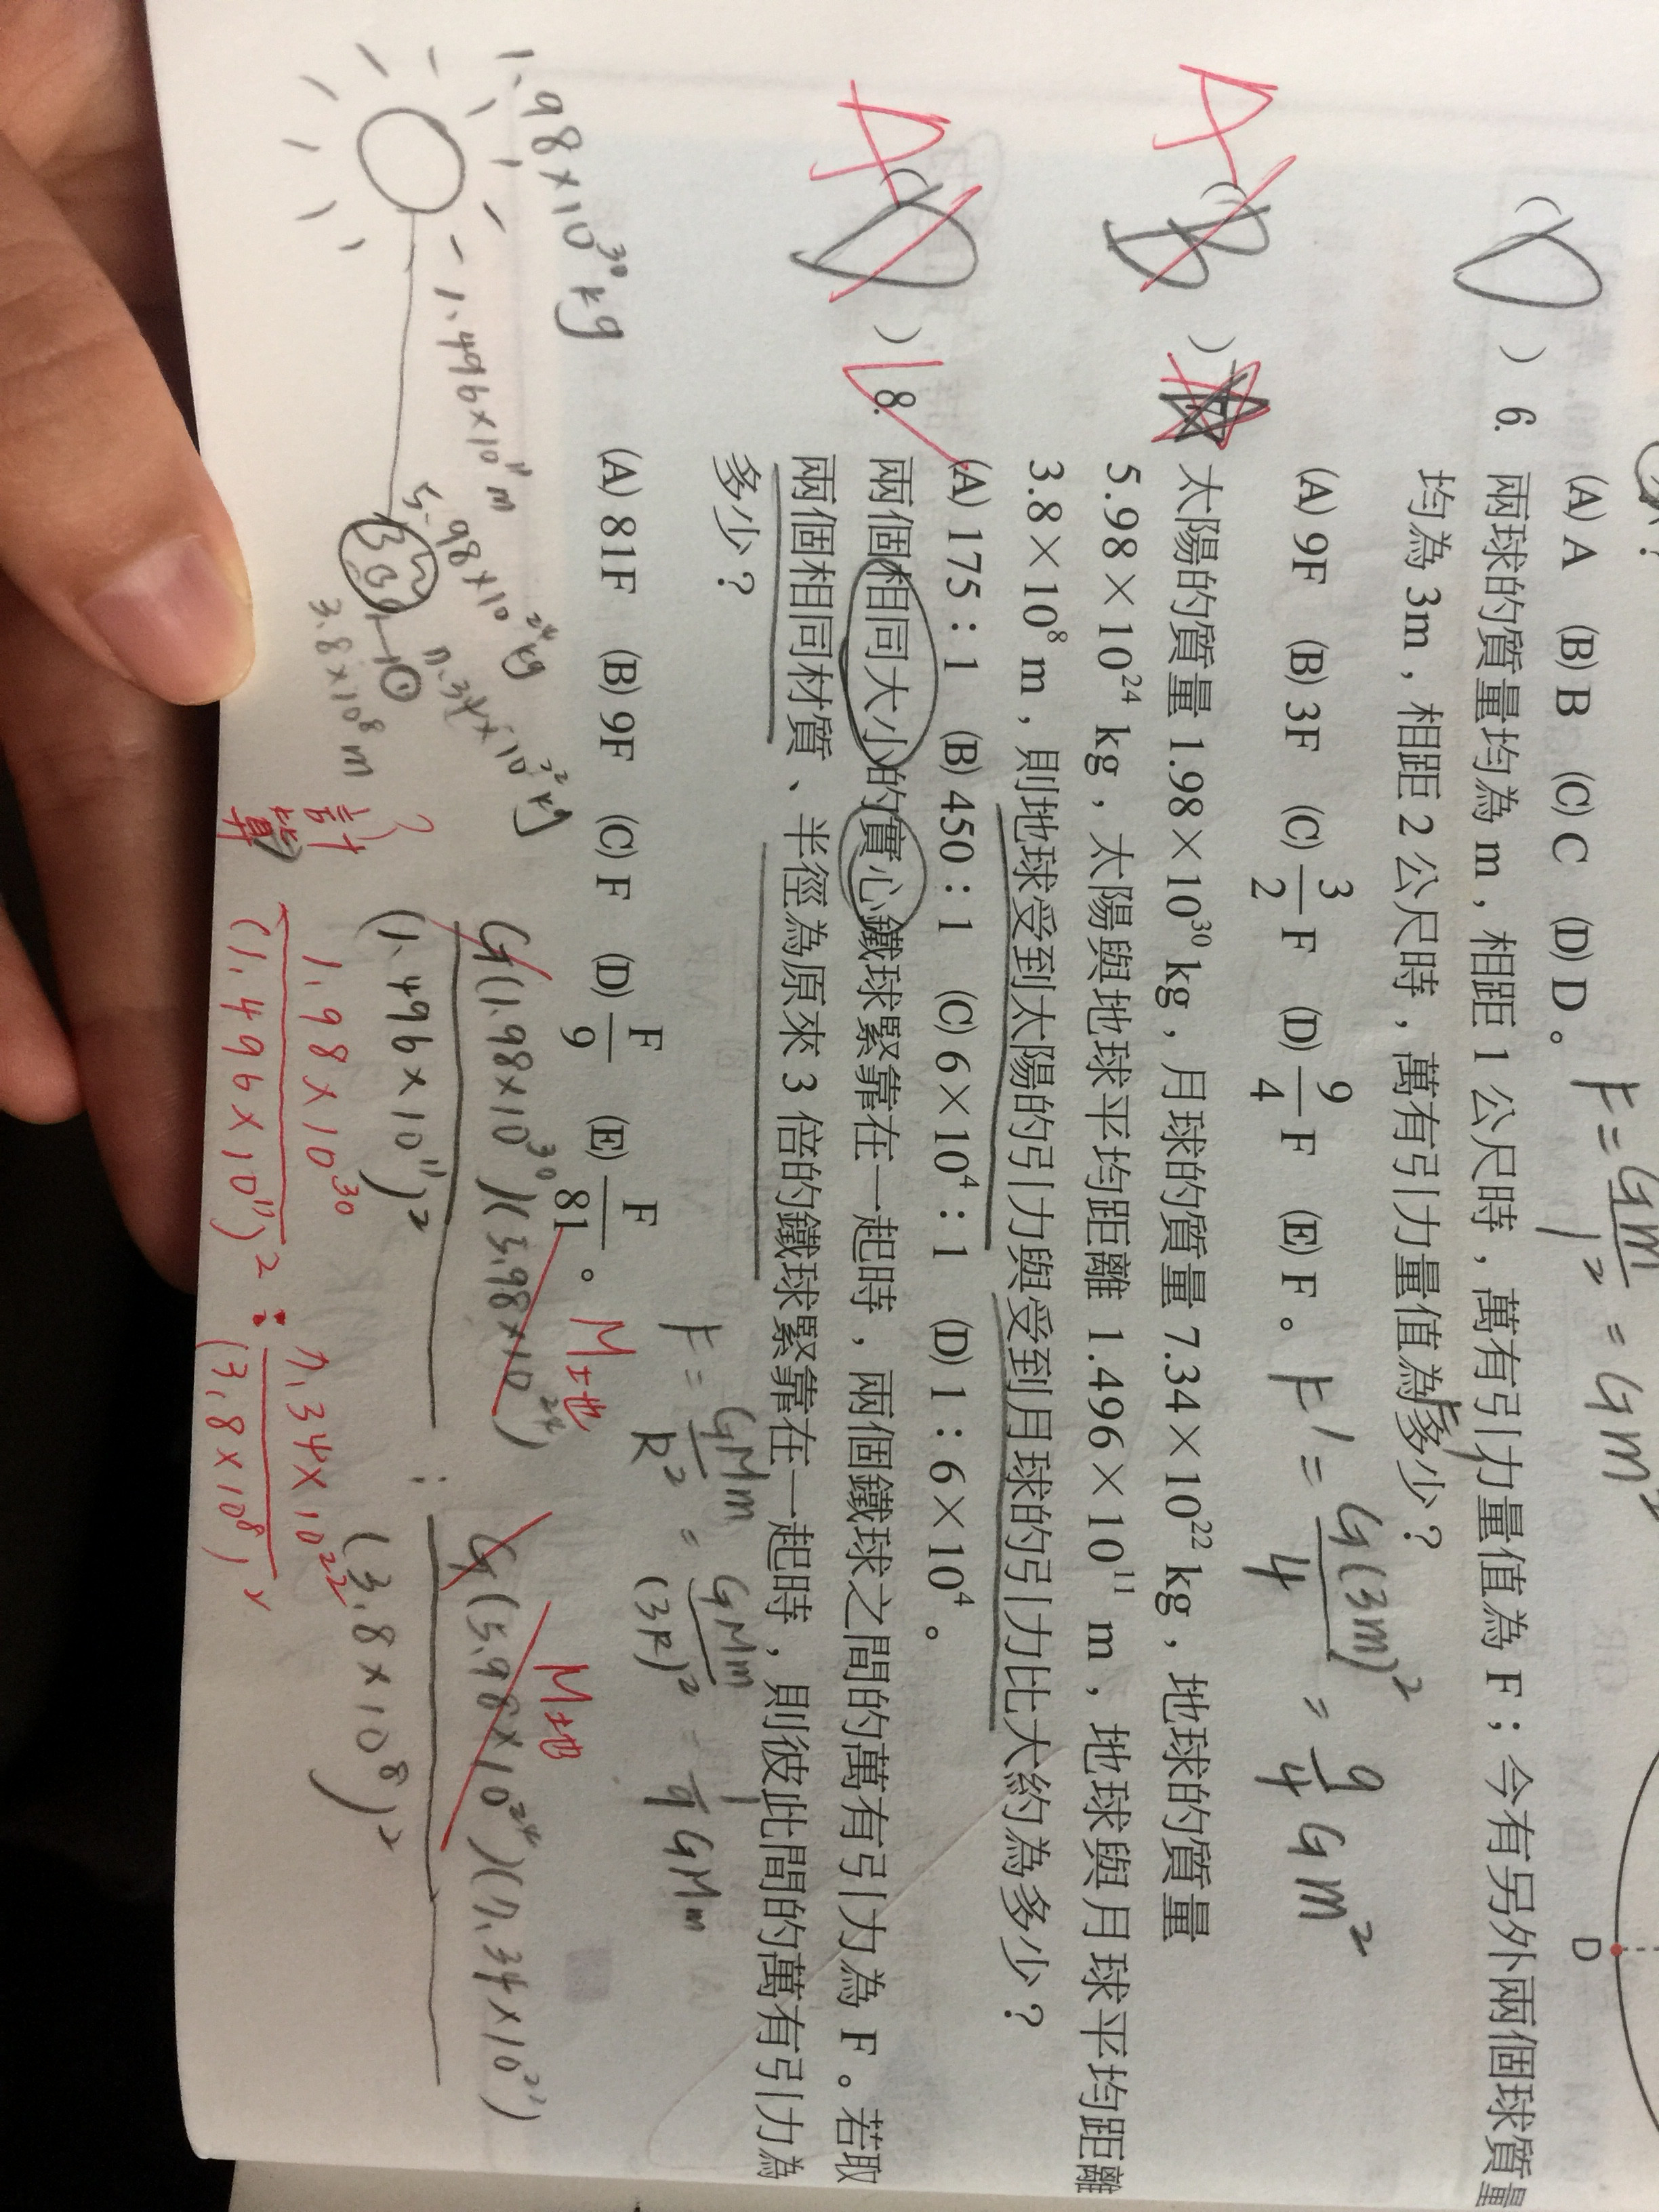 (A) A (B) B (C) C (D) D。
F = GM/1² = GM²
D
(D) 6. 兩球的質量均為 m，相距 1 公尺時，萬有引力量值為 F；今有另外兩個球質量
均為 3m，相距 2 公尺時，萬有引力量值為多少？
(A) 9F (B) 3F (C) 3/2 F (D) 9/4 F (E) F。 F' = G(3m)²/4 = 9/4 Gm²
A (B) 太陽的質量 1.98×10³⁰ kg，月球的質量 7.34×10²² kg，地球的質量
5.98×10²⁴ kg，太陽與地球平均距離 1.496×10¹¹ m，地球與月球平均距離
3.8×10⁸ m，則地球受到太陽的引力與受到月球的引力比大約為多少？
(A) 175：1 (B) 450：1 (C) 6×10⁴：1 (D) 1：6×10⁴。
A (D) 8. 兩個相同大小的實心鐵球緊靠在一起時，兩個鐵球之間的萬有引力為 F。若取
兩個相同材質、半徑為原來 3 倍的鐵球緊靠在一起時，則彼此間的萬有引力為
多少？
(A) 81F (B) 9F (C) F (D) F/9 (E) F/81。
F = GMm/R² = GMm/(3R)² = 1/9 GMm
1.98×10³⁰ kg
1.496×10¹¹ m
5.98×10²⁴ kg
7.34×10²² kg
3.8×10⁸ m
M地
M地
G(1.98×10³⁰)(5.98×10²⁴)/(1.496×10¹¹)² : G(5.98×10²⁴)(7.34×10²²)/(3.8×10⁸)²
計算?
1.98×10³⁰/(1.496×10¹¹)² : 7.34×10²²/(3.8×10⁸)²